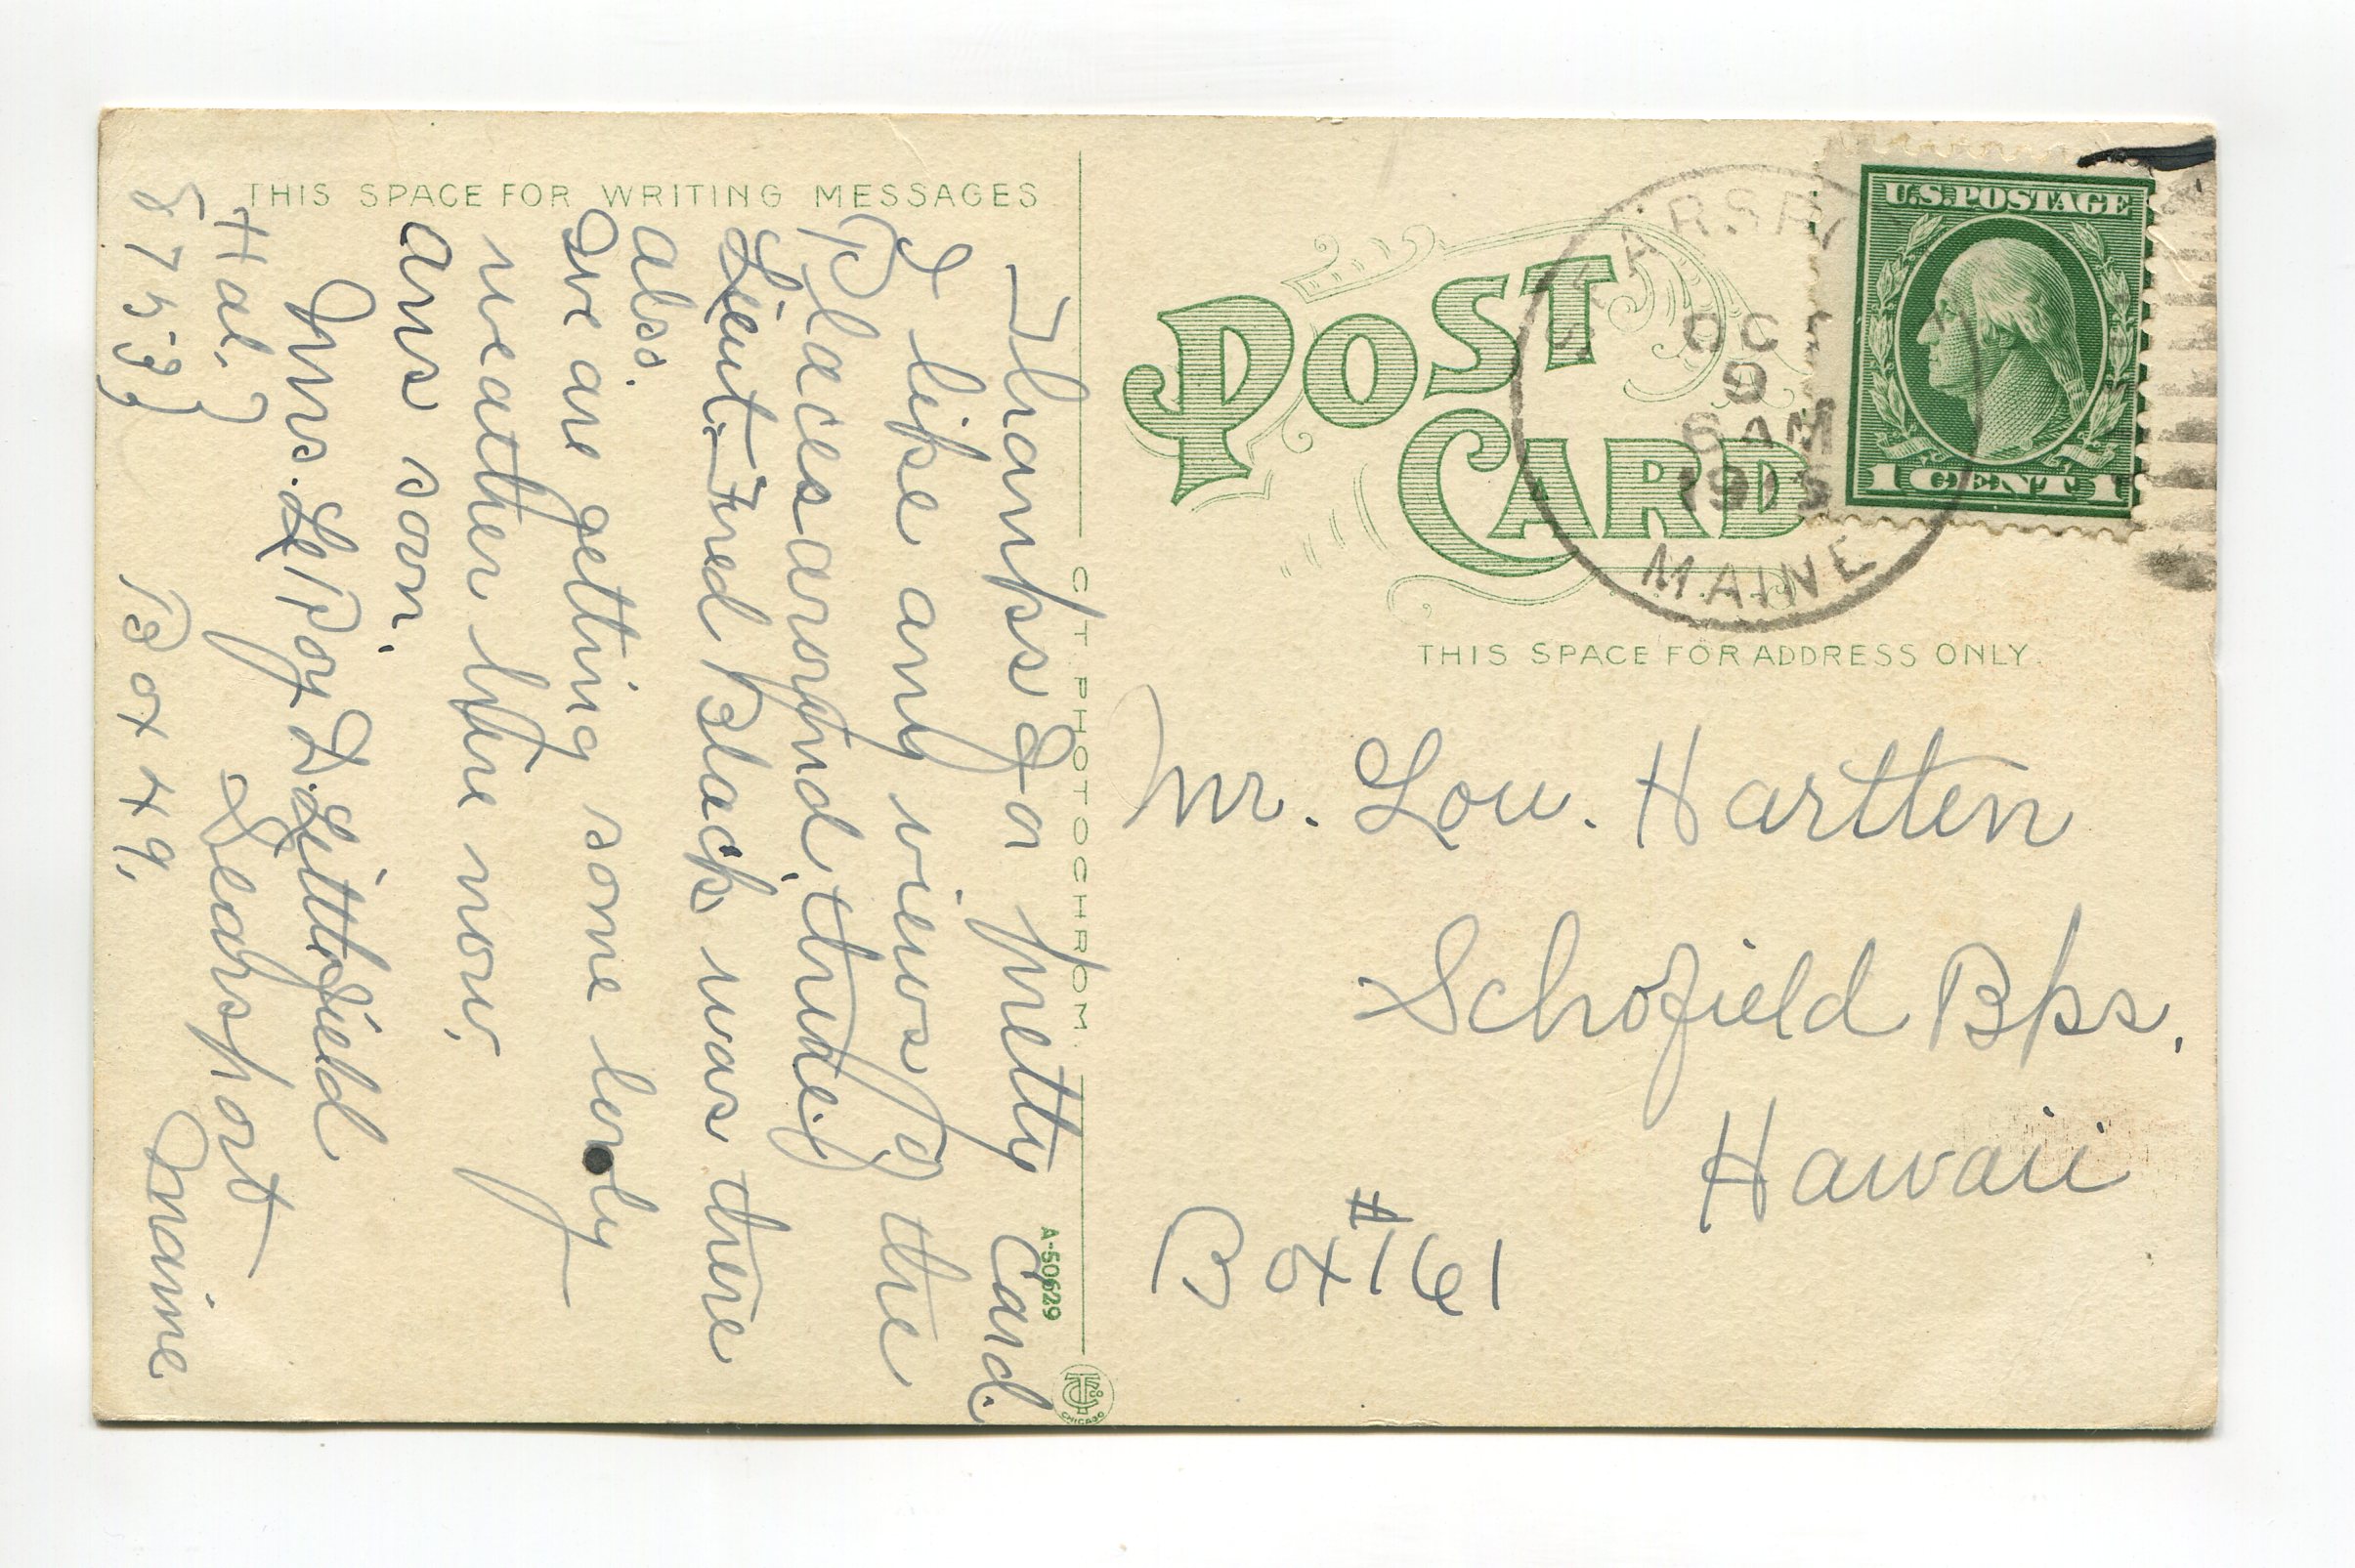 THIS SPACE FOR WRITING MESSAGES
Thanks For pretty Card.
I like any views of the
Places around there,
Lieut. Fred Black was there
also.
We are getting some lovely
weather here now,
Ans soon.
Mrs. Le Roy F. Littlefield
Searsport
Maine
Box 49,
Hal.
8753
C. T. PHOTOCHROM
A-50629
CHICAGO
POST
CARD
SEARSPO
OC
9
6 AM
1915
MAINE
U.S. POSTAGE
1 CENT 1
THIS SPACE FOR ADDRESS ONLY
Mr. Lou. Hartten
Schofield Bks.
Hawaii
Box #161